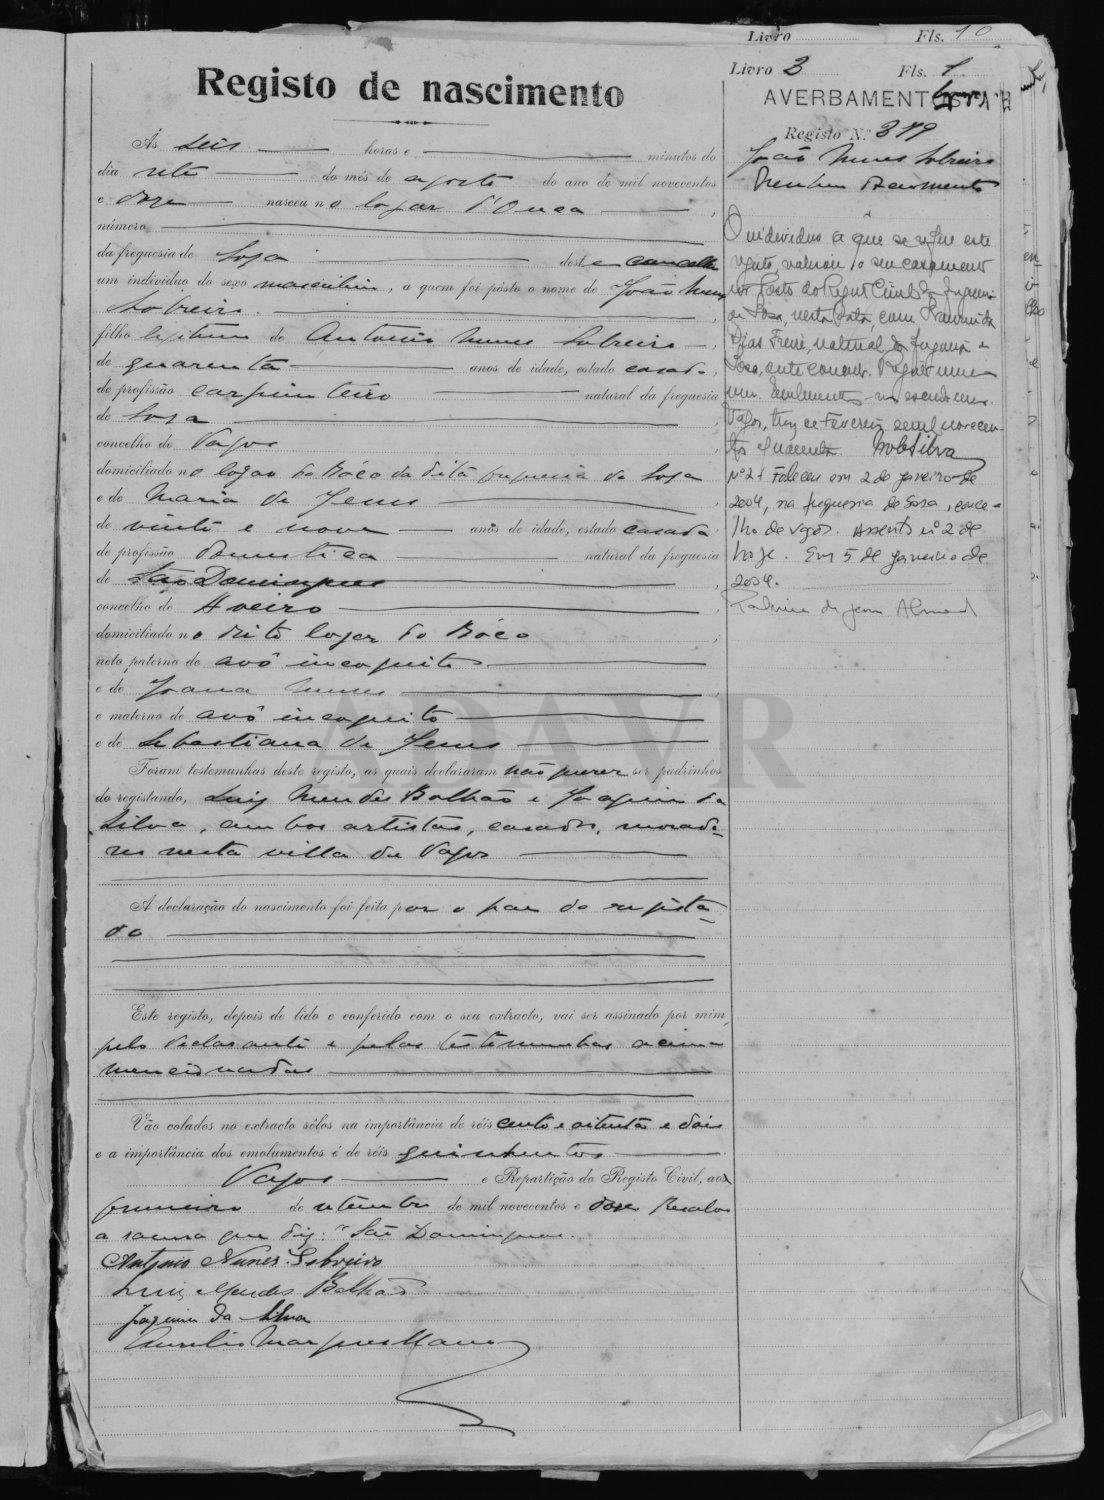 Livro Fls. 10
Livro 3 Fls. 1
Registo de nascimento
AVERBAMENTOS
Registo N.º 379
João Nunes Sobreiro
Às seis horas e minutos do
dia sete do mês de agosto do ano de mil novecentos
e doze nasceu no logar d'Ouca,
número
da freguesia de Soza deste concelho
um indivíduo do sexo masculino, a quem foi pôsto o nome de João Nunes
Sobreiro.
filho legitimo de Antonio Nunes Sobreiro,
de quarenta anos de idade, estado casado,
de profissão carpinteiro natural da freguesia
de Soza,
concelho de Vagos
domiciliado no logar do Bôco da dita freguesia de Soza
e de Maria de Jesus,
de vinte e nove anos de idade, estado casada,
de profissão domestica natural da freguesia
de São Domingues,
concelho de Aveiro,
domiciliado no dito logar do Bôco;
neto paterno de avô incognito
e de Joana Nunes,
e materno de avô incognito
e de Sebastiana de Jesus
Foram testemunhas deste registo, as quais declararam não querer ser padrinhos
do registando, Luiz Mendes Bolhão e Joaquim da
Silva, ambos artistas, casados, morado-
res nesta villa de Vagos
A declaração do nascimento foi feita por o pae do regista-
do
Este registo, depois de lido e conferido com o seu extracto, vai ser assinado por mim,
pelo declarante e pelas testemunhas acima
mencionadas
Vão colados no extracto sêlos na importância de réis cento e oitenta e dois
e a importância dos emolumentos é de réis quinhentos
Vagos e Repartição do Registo Civil, aos
primeiro de setembro de mil novecentos e doze Resalvo
a rasura que diz: "São Domingues.
Antonio Nunes Sobreiro
Luiz Mendes Bolhão
Joaquim da Silva
Aurelio Marques Mano
O individuo a que se refere este
registo, realisou o seu casamento
no Posto do Registo Civil da freguesia
de Sosa, nesta data, com
Dias Freire, natural da freguesia de
Sosa, este concelho. Registo numero
um.
Vagos, tres de Fevereiro de mil novecen-
tos e quarenta. Silva
Nº 2 Faleceu em 2 de janeiro de
2004, na freguesia de Sosa, conce-
lho de Vagos. Assento nº 2 de
hoje. Em 5 de janeiro de
2004.
ADAVR